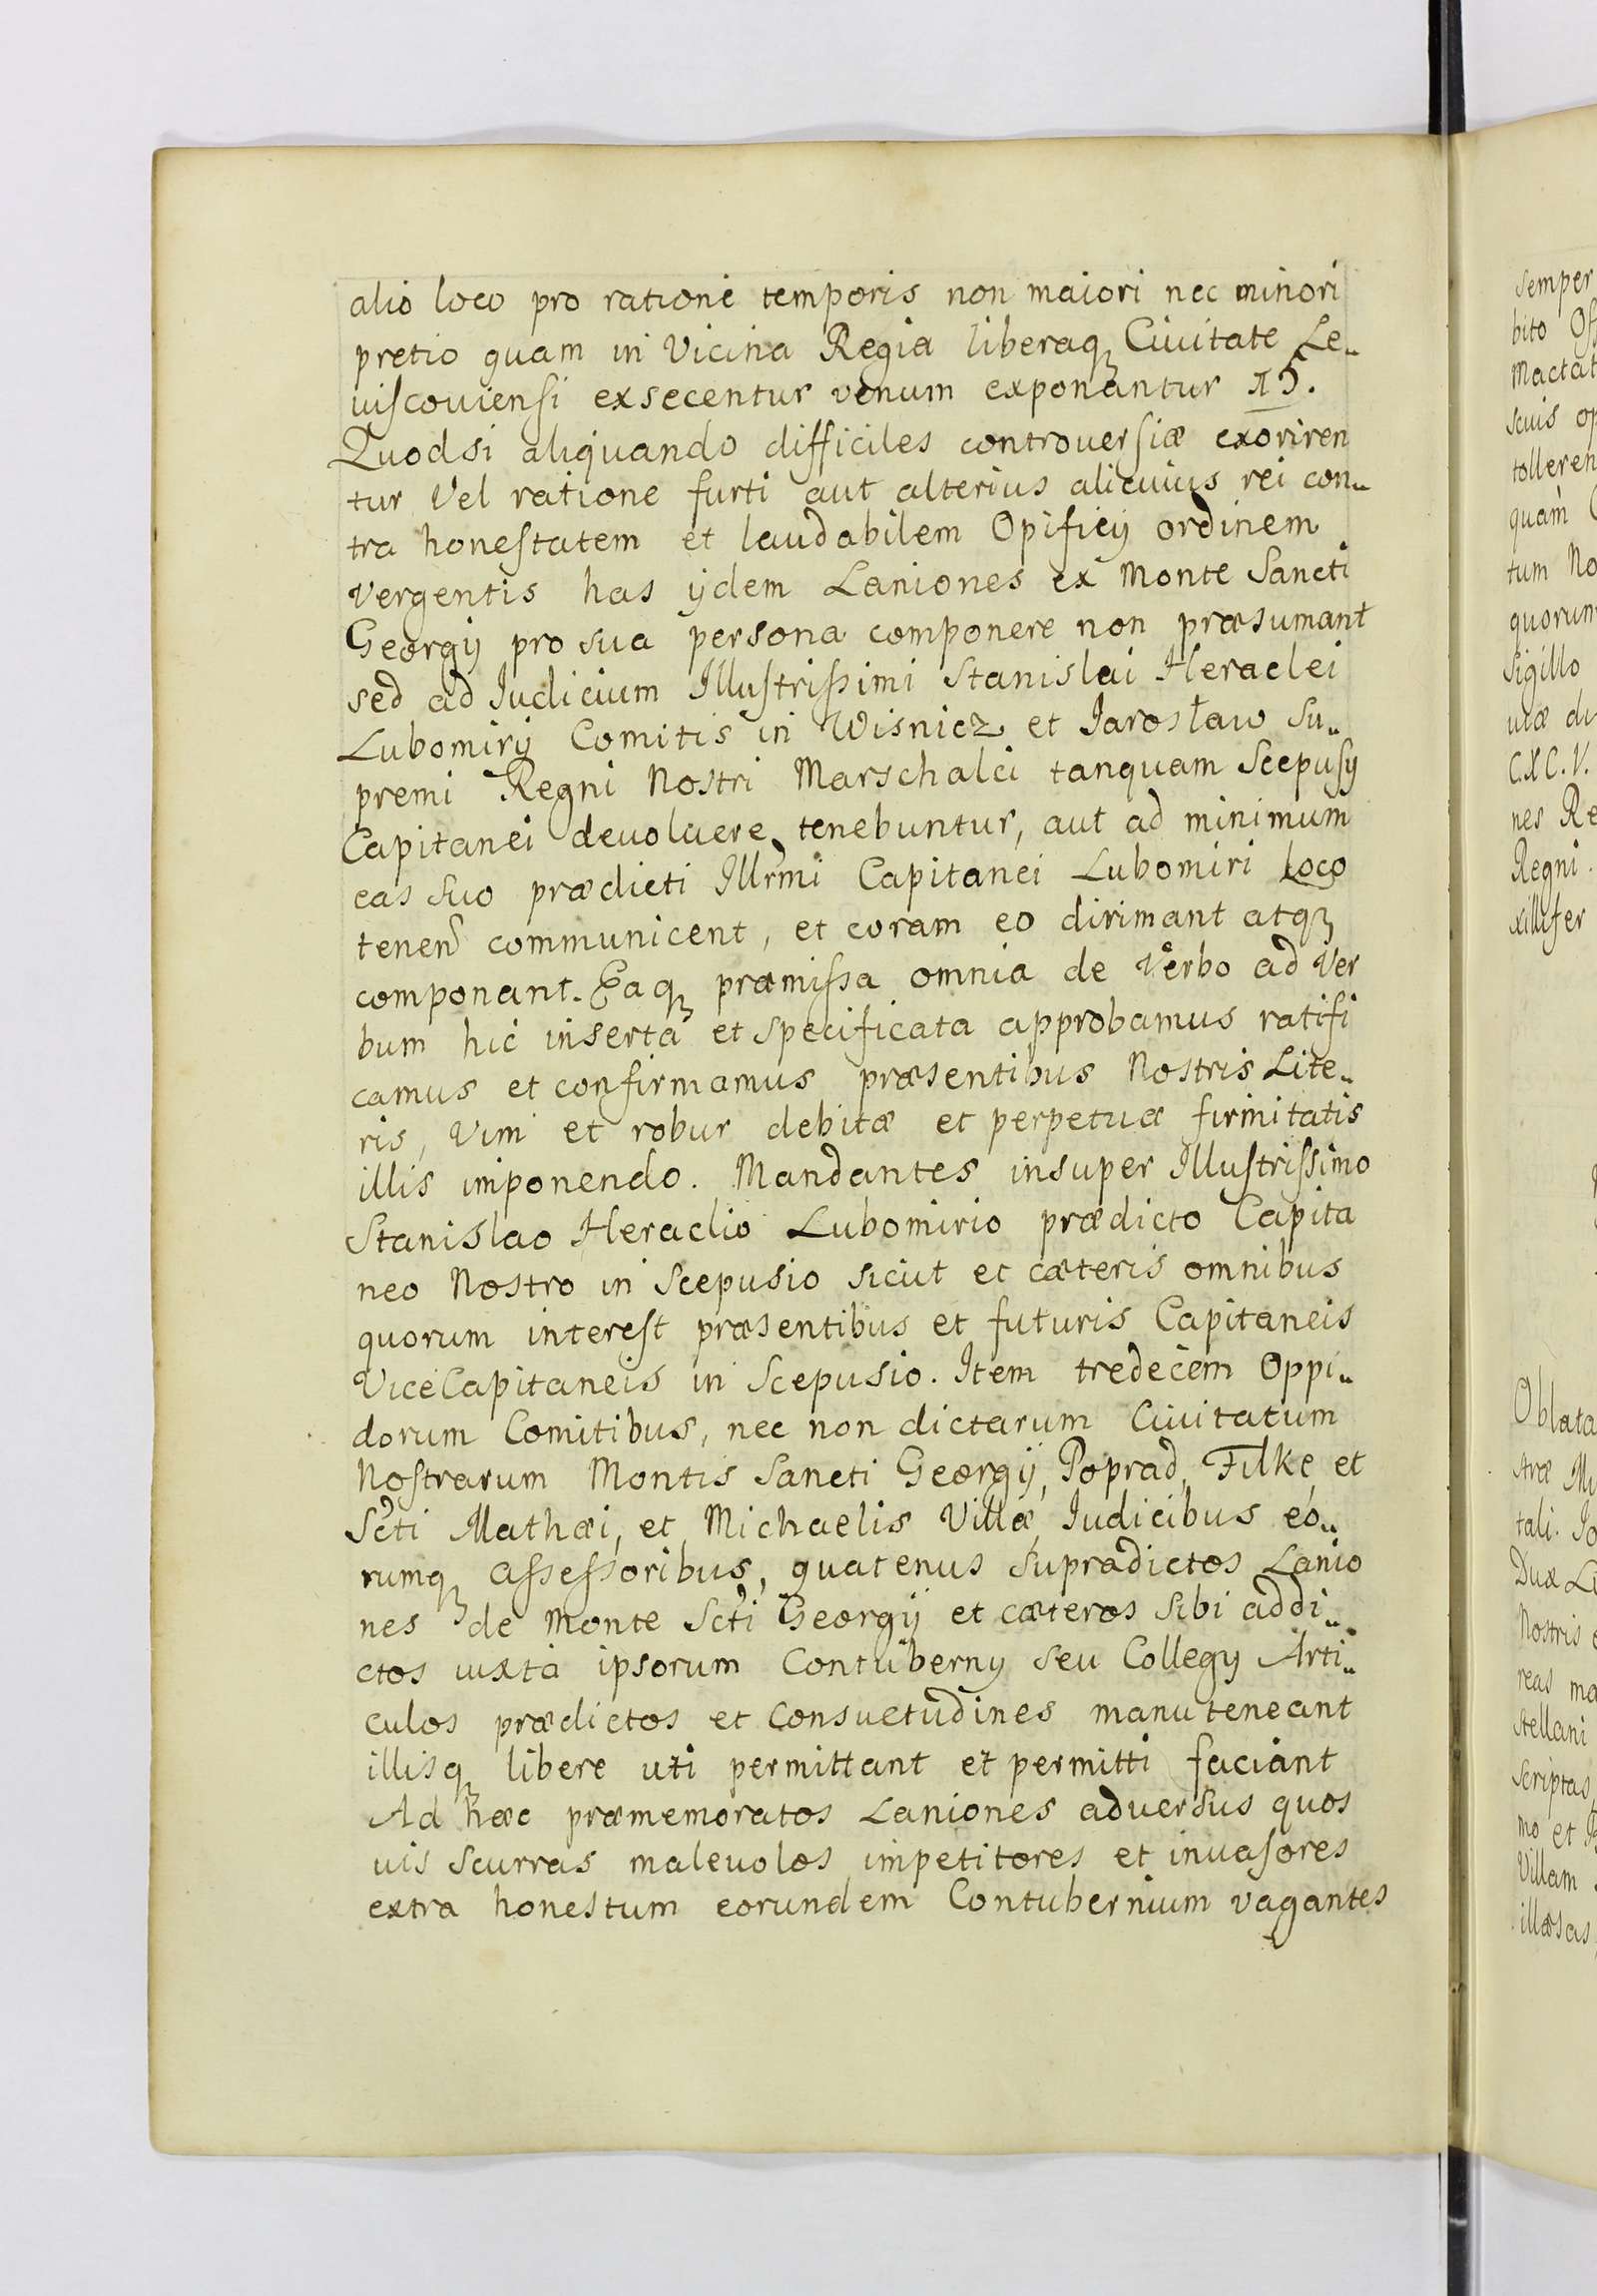 alio loco pro ratione temporis non maiori nec minori
pretio quam in Vicina Regia liberaq; Ciuitate Le„
uiscouiensi exsecentur venum exponantur 15.
Quodsi aliquando difficiles controuersiæ exoriren
tur Vel ratione furti aut alterius alicuius rei con„
tra honestatem et laudabilem Opificij ordinem
vergentis has ijdem Laniones ex Monte Sancti
Georgij pro sua persona componere non præsumant
sed ad Iudicium Illustrissimi Stanislai Heraclei
Lubomirij Comitis in Wisnicz et Jarosław Su„
premi Regni Nostri Marschalci tanquam Scepusij
Capitanei deuoluere tenebuntur, aut ad minimum
eas suo prædicti Illrmi Capitanei Lubomiri Loco
tenen communicent, et coram eo dirimant atq;
componant. Eaq; præmissa omnia de Verbo ad Ver
bum hic inserta et specificata approbamus ratifi
camus et confirmamus præsentibus Nostris Lite„
ris, Vim et robur debitæ et perpetuæ firmitatis
illis imponendo. Mandantes insuper Illustrissimo
Stanislao Heraclio Lubomirio prædicto Capita
neo Nostro in Scepusio sicut et cæteris omnibus
quorum interest præsentibus et futuris Capitaneis
ViceCapitaneis in Scepusio. Item tredecem Oppi„
dorum Comitibus, nec non dictarum Ciuitatum
Nostrarum Montis Sancti Georgij, Poprad, Filke, et
Scti Mathæi, et Michaelis Villæ, Iudicibus eo„
rumq; Assessoribus, quatenus supradictos Lanio
nes de Monte Scti Georgij et cæteros sibi addi„
ctos iuxta ipsorum Contubernij seu Collegij Arti„
culos prædictos et Consuetudines manuteneant
illisq; libere uti permittant et permitti faciant
Ad hæc præmemoratos Laniones aduersus quos
uis scurras maleuolos impetitores et inuasores
extra honestum eorundem Contubernium vagantes
semper
bito Off
Mactat
scuis op
tolleren
quam
tum No
quorum
Sigillo
uiæ du
C.X C.V.
nes Re
Regni.
xillifer
Oblata
tali. Jo
Duæ Li
Nostris
reas ma
stellani
Scriptas
mo et
Villam
illæsas